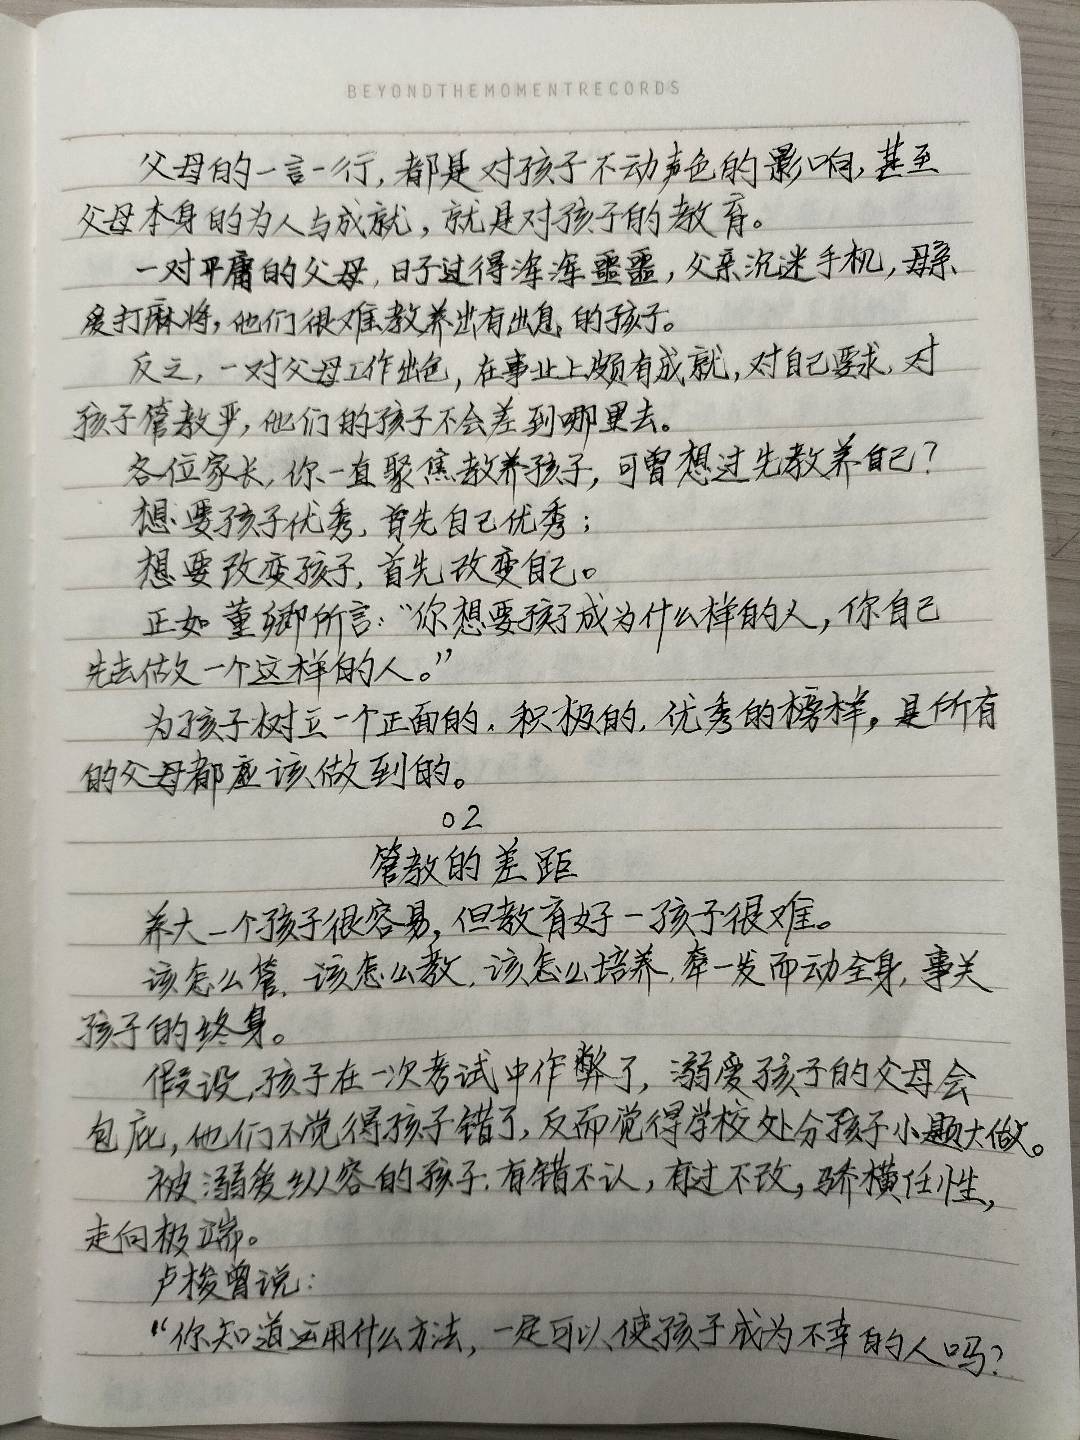 BEYONDTHEMOMENTRECORDS
父母的一言一行,都是对孩子不动声色的影响,甚至
父母本身的为人与成就,就是对孩子的教育。
一对平庸的父母,日子过得浑浑噩噩,父亲沉迷手机,母亲
爱打麻将,他们很难教养出有出息的孩子。
反之,一对父母工作出色,在事业上颇有成就,对自己要求,对
孩子管教严,他们的孩子不会差到哪里去。
各位家长,你一直聚焦教养孩子,可曾想过先教养自己?
想要孩子优秀,首先自己优秀;
想要改变孩子,首先改变自己。
正如董卿所言:“你想要孩子成为什么样的人,你自己
先去做一个这样的人。”
为孩子树立一个正面的,积极的,优秀的榜样,是所有
的父母都应该做到的。
02
管教的差距
养大一个孩子很容易,但教育好一孩子很难。
该怎么管,该怎么教,该怎么培养,牵一发而动全身,事关
孩子的终身。
假设,孩子在一次考试中作弊了,溺爱孩子的父母会
包庇,他们不觉得孩子错了,反而觉得学校处分孩子小题大做。
被溺爱纵容的孩子,有错不认,有过不改,骄横任性,
走向极端。
卢梭曾说:
“你知道运用什么方法,一定可以使孩子成为不幸的人吗?